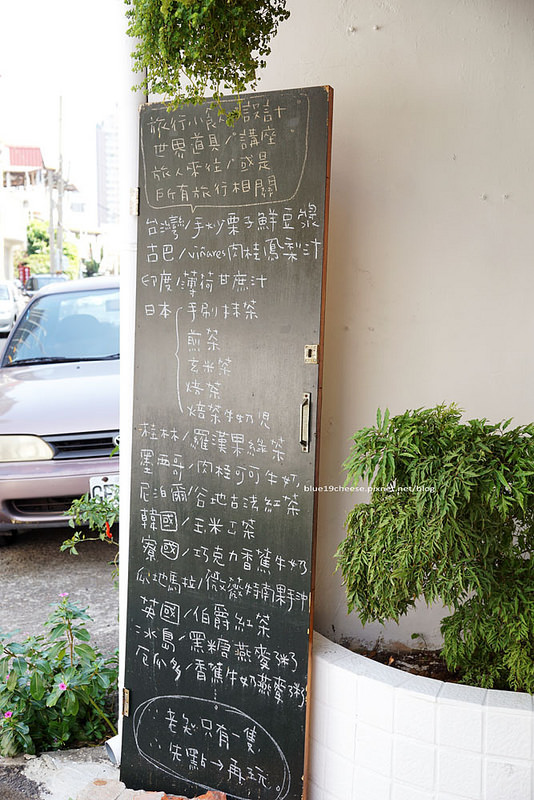 旅行小食 設計
世界道具/講座
旅人來往/或是
所有旅行相關
台灣/手炒栗子鮮豆漿
古巴/viñares肉桂鳳梨汁
印度/薄荷甘蔗汁
日本 手刷抹茶
煎茶
玄米茶
焙茶
焙茶牛奶
桂林/羅漢果綠茶
墨西哥/肉桂可可牛奶
尼泊爾/谷地古法紅茶
韓國/玉米 茶
寮國/巧克力香蕉牛奶
瓜地馬拉/薇薇特南果手沖
英國/伯爵紅茶
冰島/黑糖燕麥粥
厄瓜多/香蕉牛奶燕麥粥
∴老 只有一隻
∴先點→再玩。
blue19cheese.pixnet.net/blog